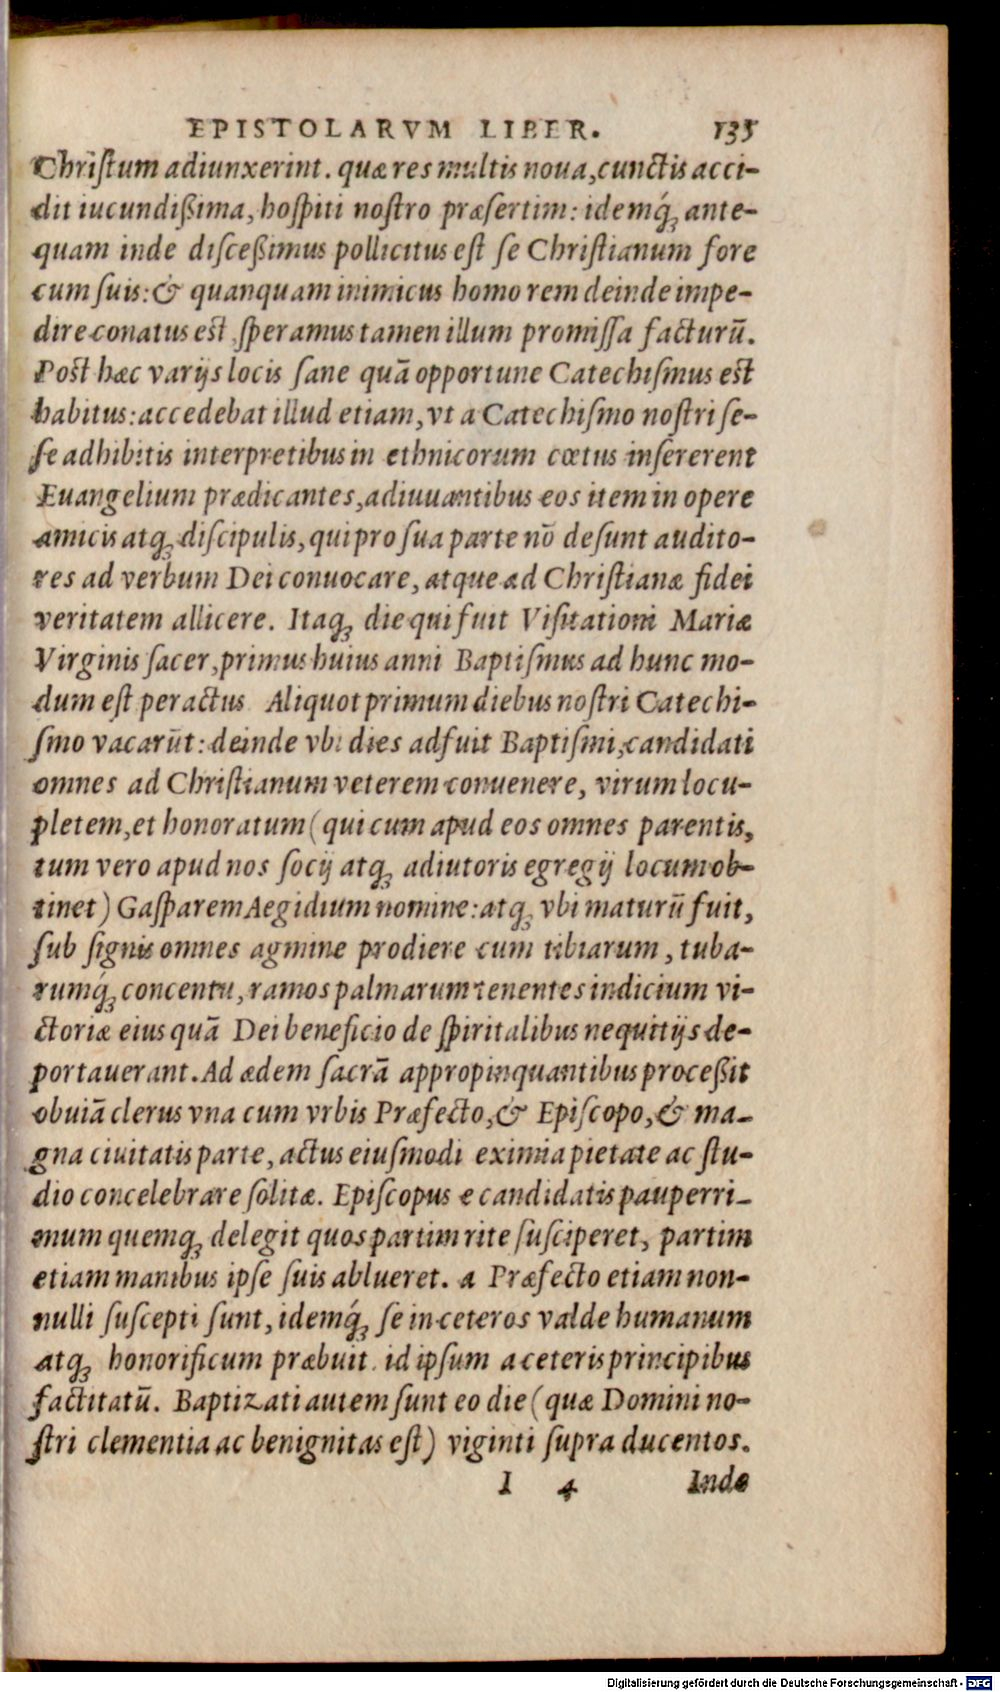 EPISTOLARVM LIBER. 135
Chriſtum adiunxerint. quæ res multis noua, cunctis acci-
dit iucundißima, hoſpiti noſtro præſertim: idemq́; ante-
quam inde diſceßimus pollicitus eſt ſe Chriſtianum fore
cum ſuis: & quanquam inimicus homo rem deinde impe-
dire conatus est, ſperamus tamen illum promiſſa facturū.
Post hæc varijs locis ſane quā opportune Catechiſmus est
habitus: accedebat illud etiam, vt a Catechiſmo noſtri ſe-
ſe adhibitis interpretibus in ethnicorum cœtus inſererent
Euangelium prædicantes, adiuuantibus eos item in opere
amicis atq; diſcipulis, qui pro ſua parte nō deſunt audito-
res ad verbum Dei conuocare, atque ad Chriſtianæ fidei
veritatem allicere. Itaq; die qui fuit Viſitationi Mariæ
Virginis ſacer, primus huius anni Baptiſmus ad hunc mo-
dum eſt peractus Aliquot primum diebus noſtri Catechi-
ſmo vacarūt: deinde vbi dies adfuit Baptiſmi, candidati
omnes ad Chriſtianum veterem conuenere, virum locu-
pletem, et honoratum (qui cum apud eos omnes parentis,
tum vero apud nos ſocij atq; adiutoris egregij locum ob-
tinet) Gaſparem Aegidium nomine: atq; vbi maturū fuit,
ſub ſignis omnes agmine prodiere cum tibiarum, tuba-
rumq́; concentu, ramos palmarum tenentes indicium vi-
ctoriæ eius quā Dei beneficio de ſpiritalibus nequitijs de-
portauerant. Ad ædem ſacrā appropinquantibus proceßit
obuiā clerus vna cum vrbis Præfecto, & Epiſcopo, & ma-
gna ciuitatis parte, actus eiuſmodi eximia pietate ac ſtu-
dio concelebrare ſolitæ. Epiſcopus e candidatis pauperri-
mum quemq; delegit quos partim rite ſuſciperet, partim
etiam manibus ipſe ſuis ablueret. a Præfecto etiam non-
nulli ſuſcepti ſunt, idemq́; ſe in ceteros valde humanum
atq; honorificum præbuit. id ipſum a ceteris principibus
factitatū. Baptizati autem ſunt eo die (quæ Domini no-
ſtri clementia ac benignitas eſt) viginti ſupra ducentos.
I 4 Inde
Digitalisierung gefördert durch die Deutsche Forschungsgemeinschaft - DFG